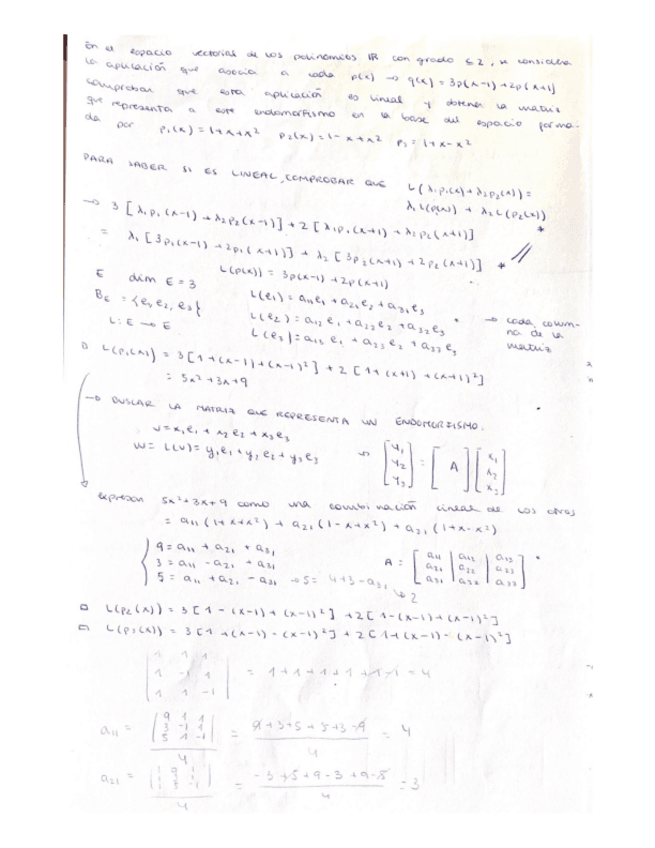 En el espacio vectorial de los polinomios ℝ con grado ≤ 2, se considera
la aplicación que asocia a cada p(x) → q(x) = 3p(x-1) + 2p(x+1)
comprobar que esta aplicación es lineal y obtener la matriz
que representa a este endomorfismo en la base del espacio forma-
da por p₁(x) = 1+x+x² p₂(x) = 1-x+x² p₃ = 1+x-x²
PARA SABER SI ES LINEAL, COMPROBAR QUE L(λ₁p₁(x)+λ₂p₂(x)) =
λ₁L(p₁(x)) + λ₂L(p₂(x))
→ 3[λ₁p₁(x-1)+λ₂p₂(x-1)] + 2[λ₁p₁(x+1)+λ₂p₂(x+1)] *
= λ₁[3p₁(x-1)+2p₁(x+1)] + λ₂[3p₂(x-1)+2p₂(x+1)] * //
E dim E = 3 L(p(x)) = 3p(x-1)+2p(x+1)
B_E = {e₁, e₂, e₃} L(e₁) = a₁₁e₁ + a₂₁e₂ + a₃₁e₃
L: E → E L(e₂) = a₁₂e₁ + a₂₂e₂ + a₃₂e₃ → cada colum-
L(e₃) = a₁₃e₁ + a₂₃e₂ + a₃₃e₃ na de la
matriz
L(p₁(x)) = 3[1+(x-1)+(x-1)²] + 2[1+(x+1)+(x+1)²]
= 5x²+3x+9
→ BUSCAR LA MATRIZ QUE REPRESENTA UN ENDOMORFISMO.
v = x₁e₁ + x₂e₂ + x₃e₃
w = L(v) = y₁e₁ + y₂e₂ + y₃e₃ → [y₁ y₂ y₃] = [A] [x₁ x₂ x₃]
expresan 5x²+3x+9 como una combinación lineal de los otros
= a₁₁(1+x+x²) + a₂₁(1-x+x²) + a₃₁(1+x-x²)
9 = a₁₁ + a₂₁ + a₃₁
3 = a₁₁ - a₂₁ + a₃₁ A = [a₁₁ a₁₂ a₁₃ a₂₁ a₂₂ a₂₃ a₃₁ a₃₂ a₃₃]
5 = a₁₁ + a₂₁ - a₃₁ → 5 = 4+3-a₃₁
↳ 2
□ L(p₂(x)) = 3[1-(x-1)+(x-1)²] + 2[1-(x-1)+(x-1)²]
□ L(p₃(x)) = 3[1+(x-1)-(x-1)²] + 2[1+(x-1)-(x-1)²]
|1 1 1
1 -1 1
1 1 -1| = 1+1+1+1+1-1 = 4
a₁₁ = |9 1 1 3 -1 1 5 1 -1| / 4 = 9+3+5+5+3-9 / 4 = 4
a₂₁ = / 4 = -3+5+9-3+9-5 / 4 = 3